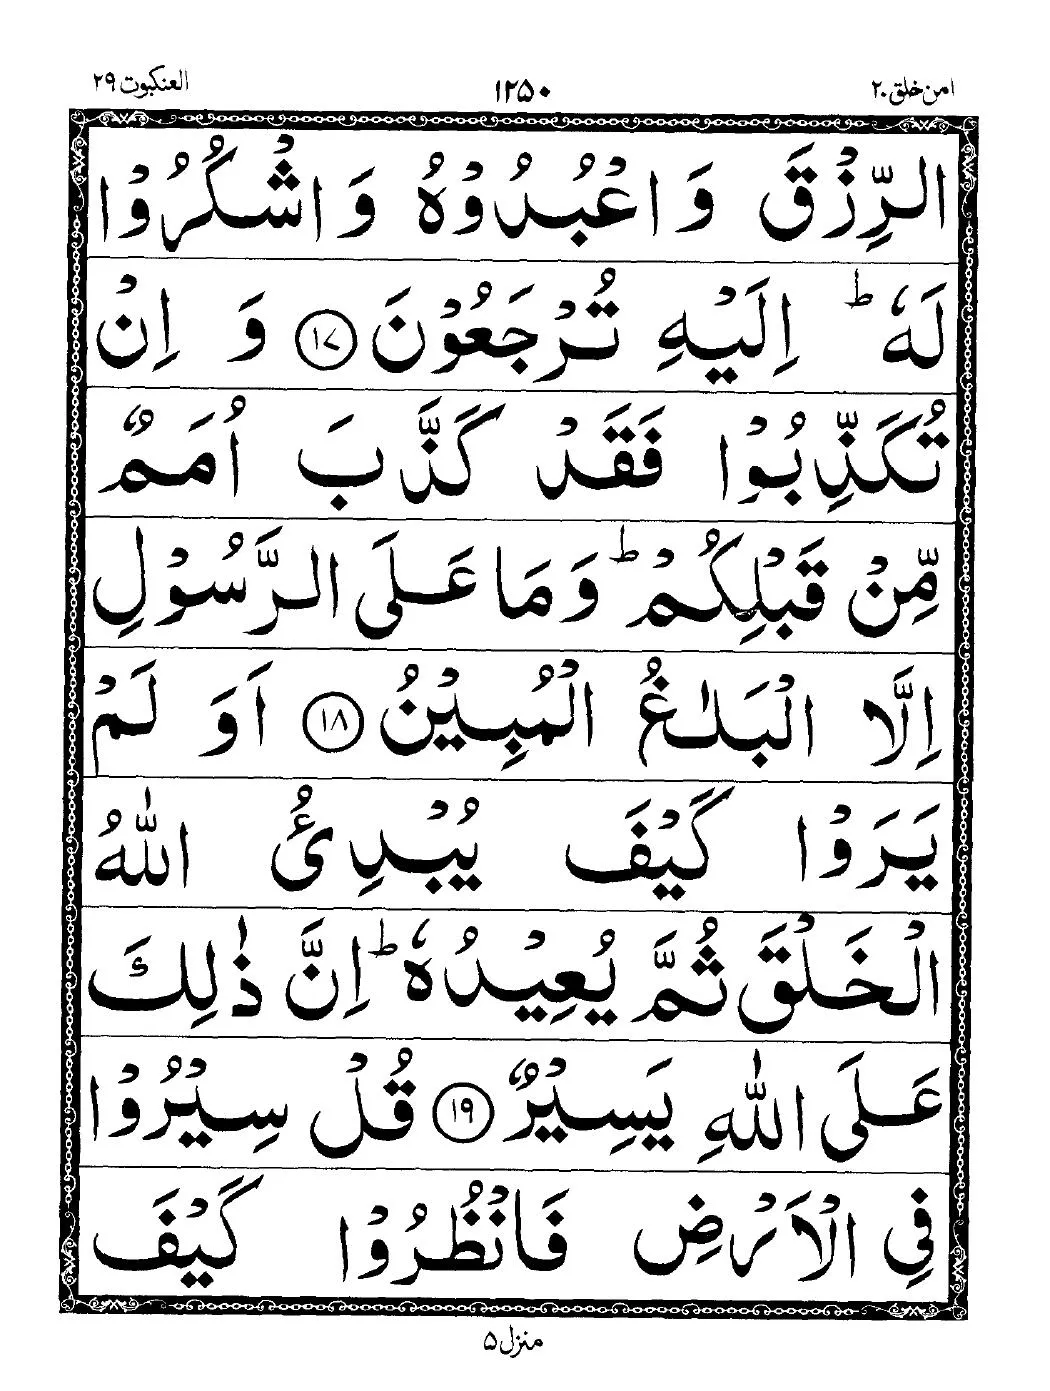 امن خلق ۲۰
۱۲۵۰
العنکبوت ۲۹
الرِّزْقَ وَاعْبُدُوْهُ وَاشْكُرُوْا
لَهٗ ؕ اِلَيْهِ تُرْجَعُوْنَ ۱۷ وَ اِنْ
تُكَذِّبُوْا فَقَدْ كَذَّبَ اُمَمٌ
مِّنْ قَبْلِكُمْ ؕ وَمَا عَلَى الرَّسُوْلِ
اِلَّا الْبَلٰغُ الْمُبِيْنُ ۱۸ اَوَ لَمْ
يَرَوْا كَيْفَ يُبْدِئُ اللّٰهُ
الْخَلْقَ ثُمَّ يُعِيْدُهٗ ؕ اِنَّ ذٰلِكَ
عَلَى اللّٰهِ يَسِيْرٌ ۱۹ قُلْ سِيْرُوْا
فِي الْاَرْضِ فَانْظُرُوْا كَيْفَ
منزل ۵